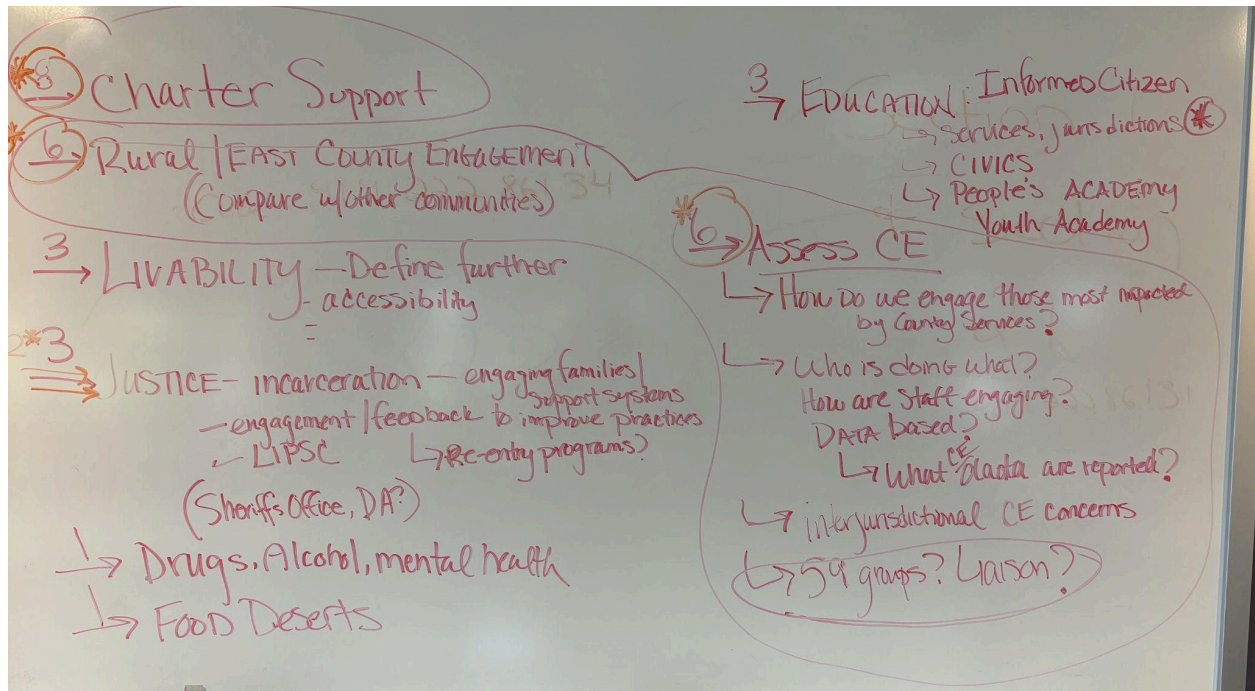 *8 Charter Support
*6 Rural / EAST COUNTY ENGAGEMENT
(Compare w/other communities)
3 → LIVABILITY — Define further
- accessibility
-
*3 → JUSTICE - incarceration - engaging families/
support systems
- engagement/feedback to improve practices
- LPSC ↳ Re-entry programs?
(Sheriffs Office, DA?)
1 → Drugs, Alcohol, mental health
1 → FOOD Deserts
3 → EDUCATION: Informed Citizen
↳ services, jurisdictions *
↳ CIVICS
↳ People's ACADEMY
Youth Academy
*6 → Assess CE
↳ How Do we engage those most impacted
by County Services?
↳ Who is doing what?
How are staff engaging?
DATA based?
↳ What CE data are reported?
↳ interjurisdictional CE concerns
↳ 59 groups? Liaison?